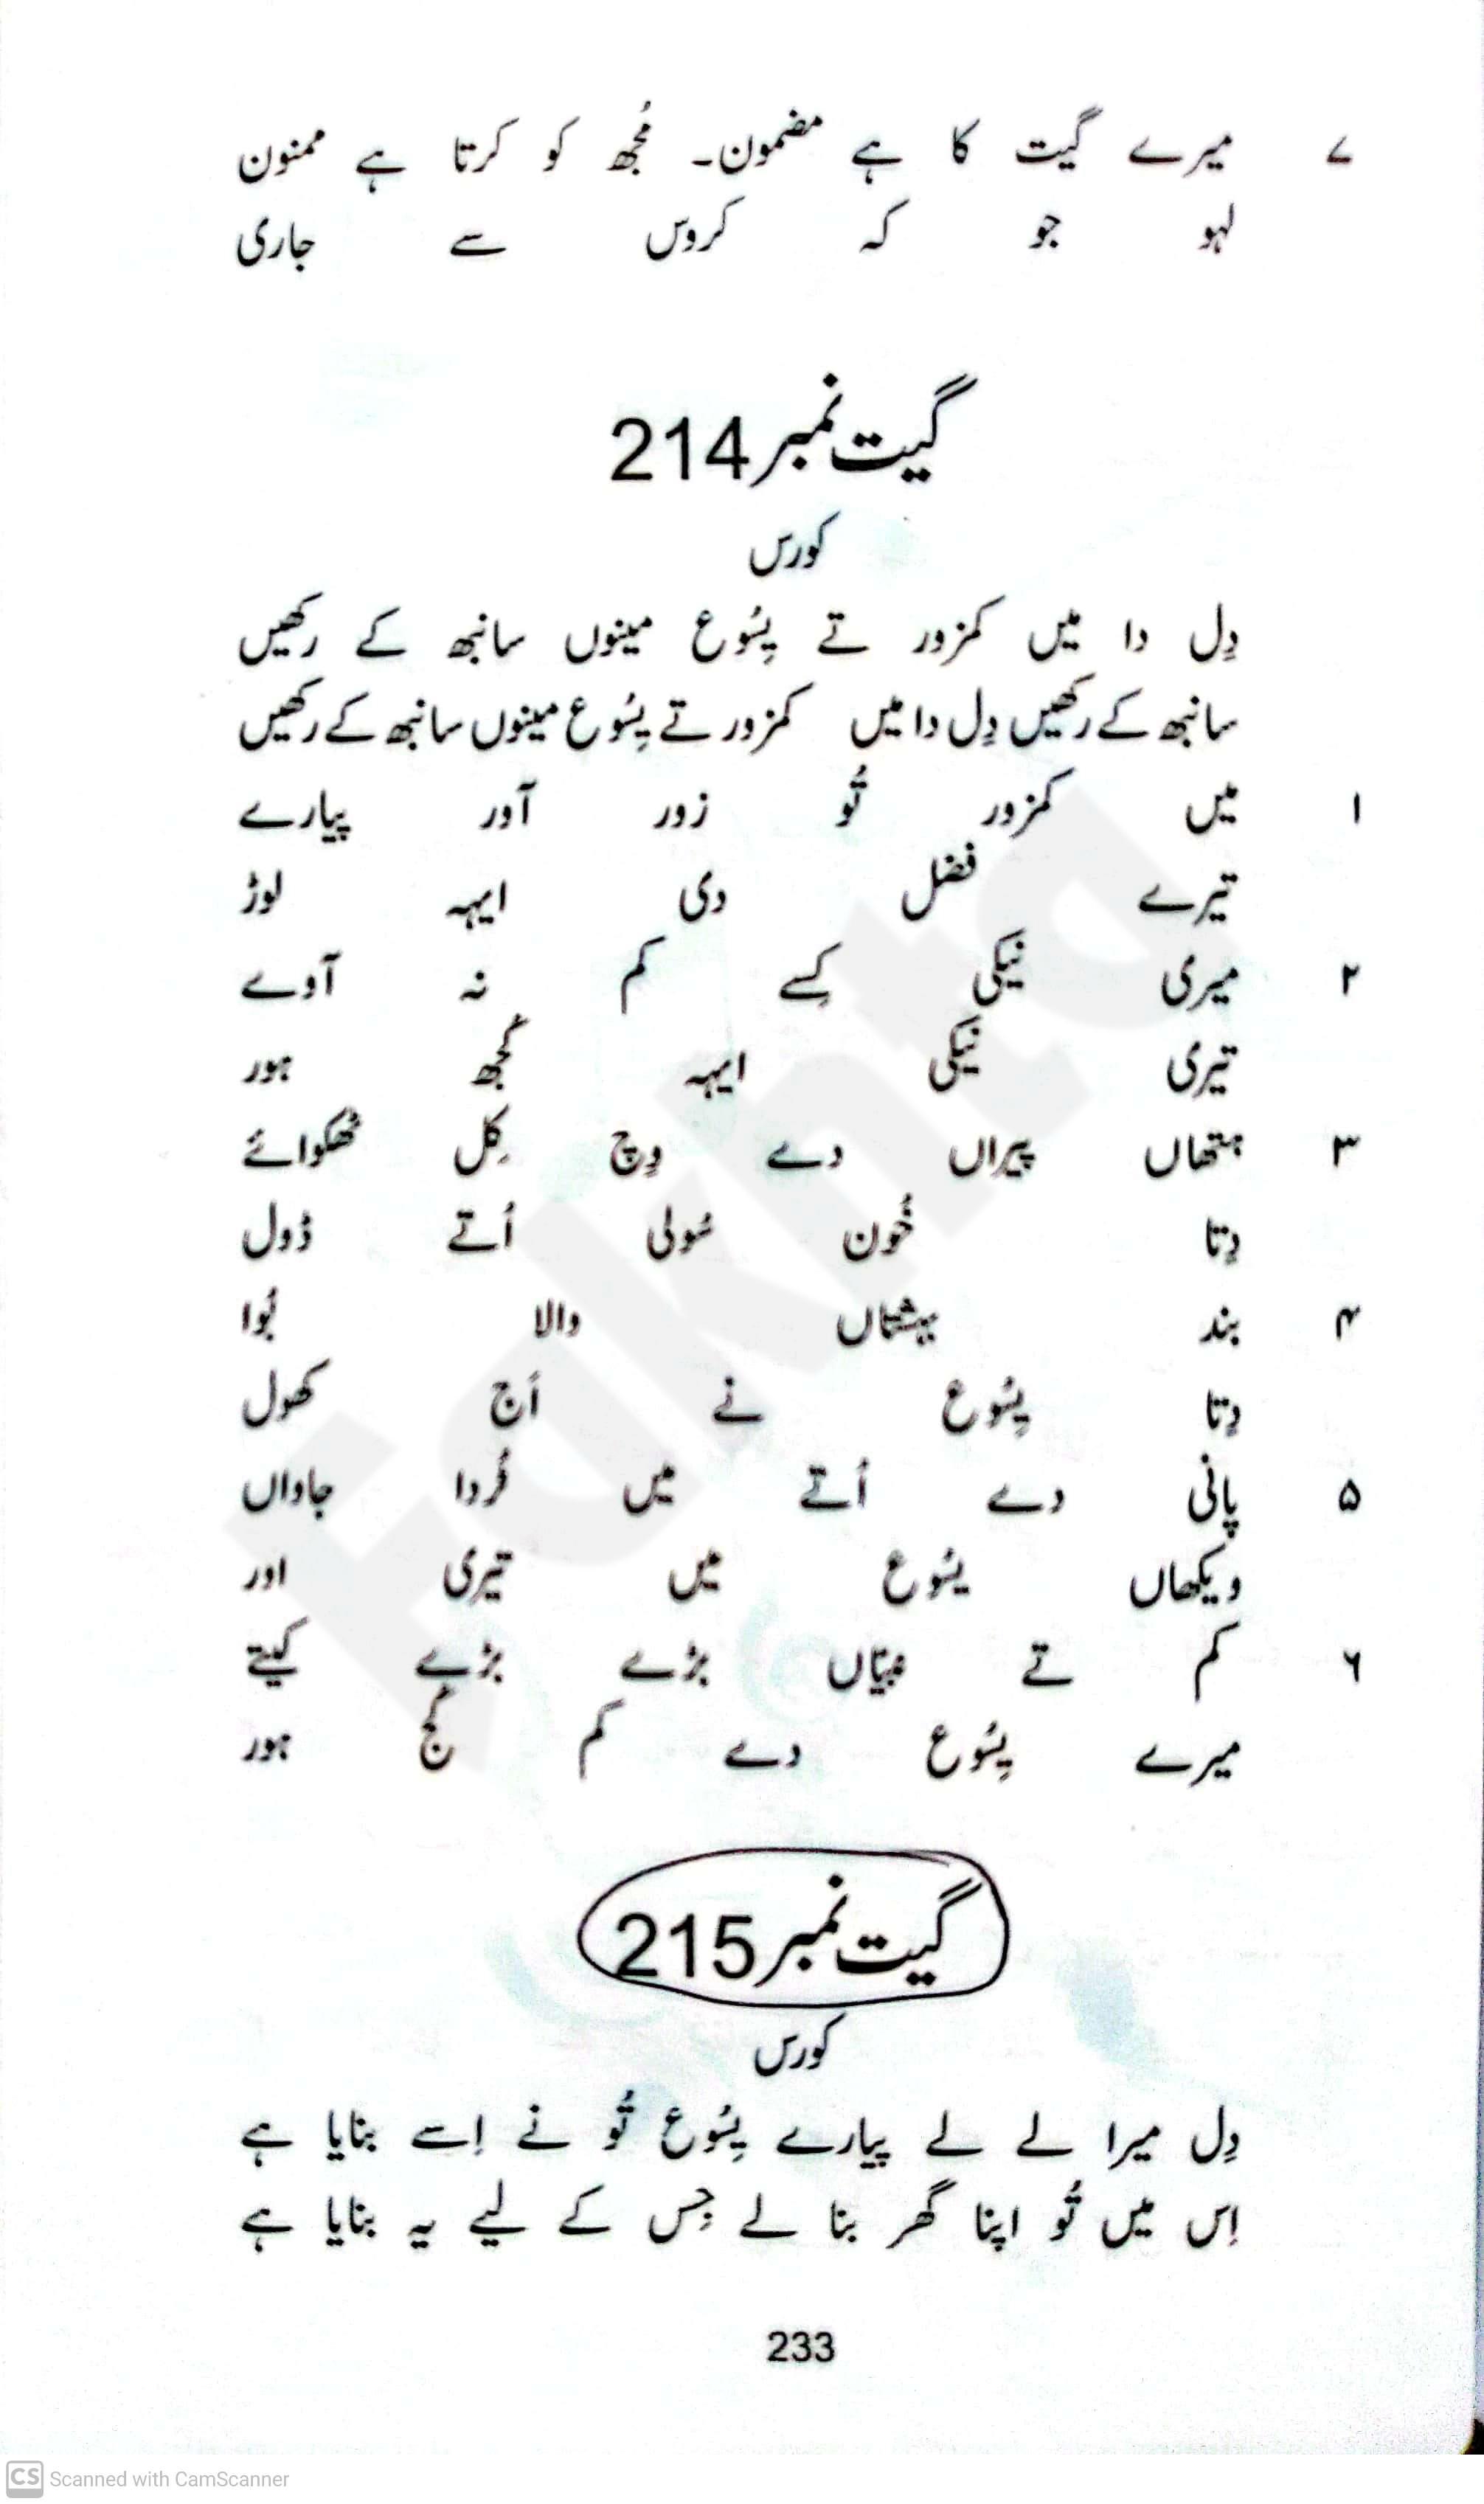 ۷ میرے گیت کا ہے مضمون۔ مُجھ کو کرتا ہے ممنون
لہو جو کہ کروس سے جاری
گیت نمبر 214
کورس
دِل دا میں کمزور تے یِسُوع مینوں سانبھ کے رکھیں
سانبھ کے رکھیں دِل دا میں کمزور تے یِسُوع مینوں سانبھ کے رکھیں
۱ میں کمزور تُو زور آور پیارے
تیرے فضل دی ایہہ لوڑ
۲ میری نیکی کِسے کم نہ آوے
تیری نیکی ایہہ کُجھ ہور
۳ ہتھاں پیراں دے وِچ کِل ٹھکوائے
دِتا خُون سُولی اُتے ڈول
۴ بند بہشتاں والا بُوا
دِتا یِسُوع نے اَج کھول
۵ پانی دے اُتے میں تُردا جاواں
ویکھاں یسُوع میں تیری اور
۶ کم تے نبیّاں بڑے بڑے کیتے
میرے یِسُوع دے کم کُج ہور
گیت نمبر 215
کورس
دِل میرا لے لے پیارے یِسُوع تُو نے اِسے بنایا ہے
اِس میں تُو اپنا گھر بنا لے جِس کے لیے یہ بنایا ہے
233
Fakhta
CS Scanned with CamScanner